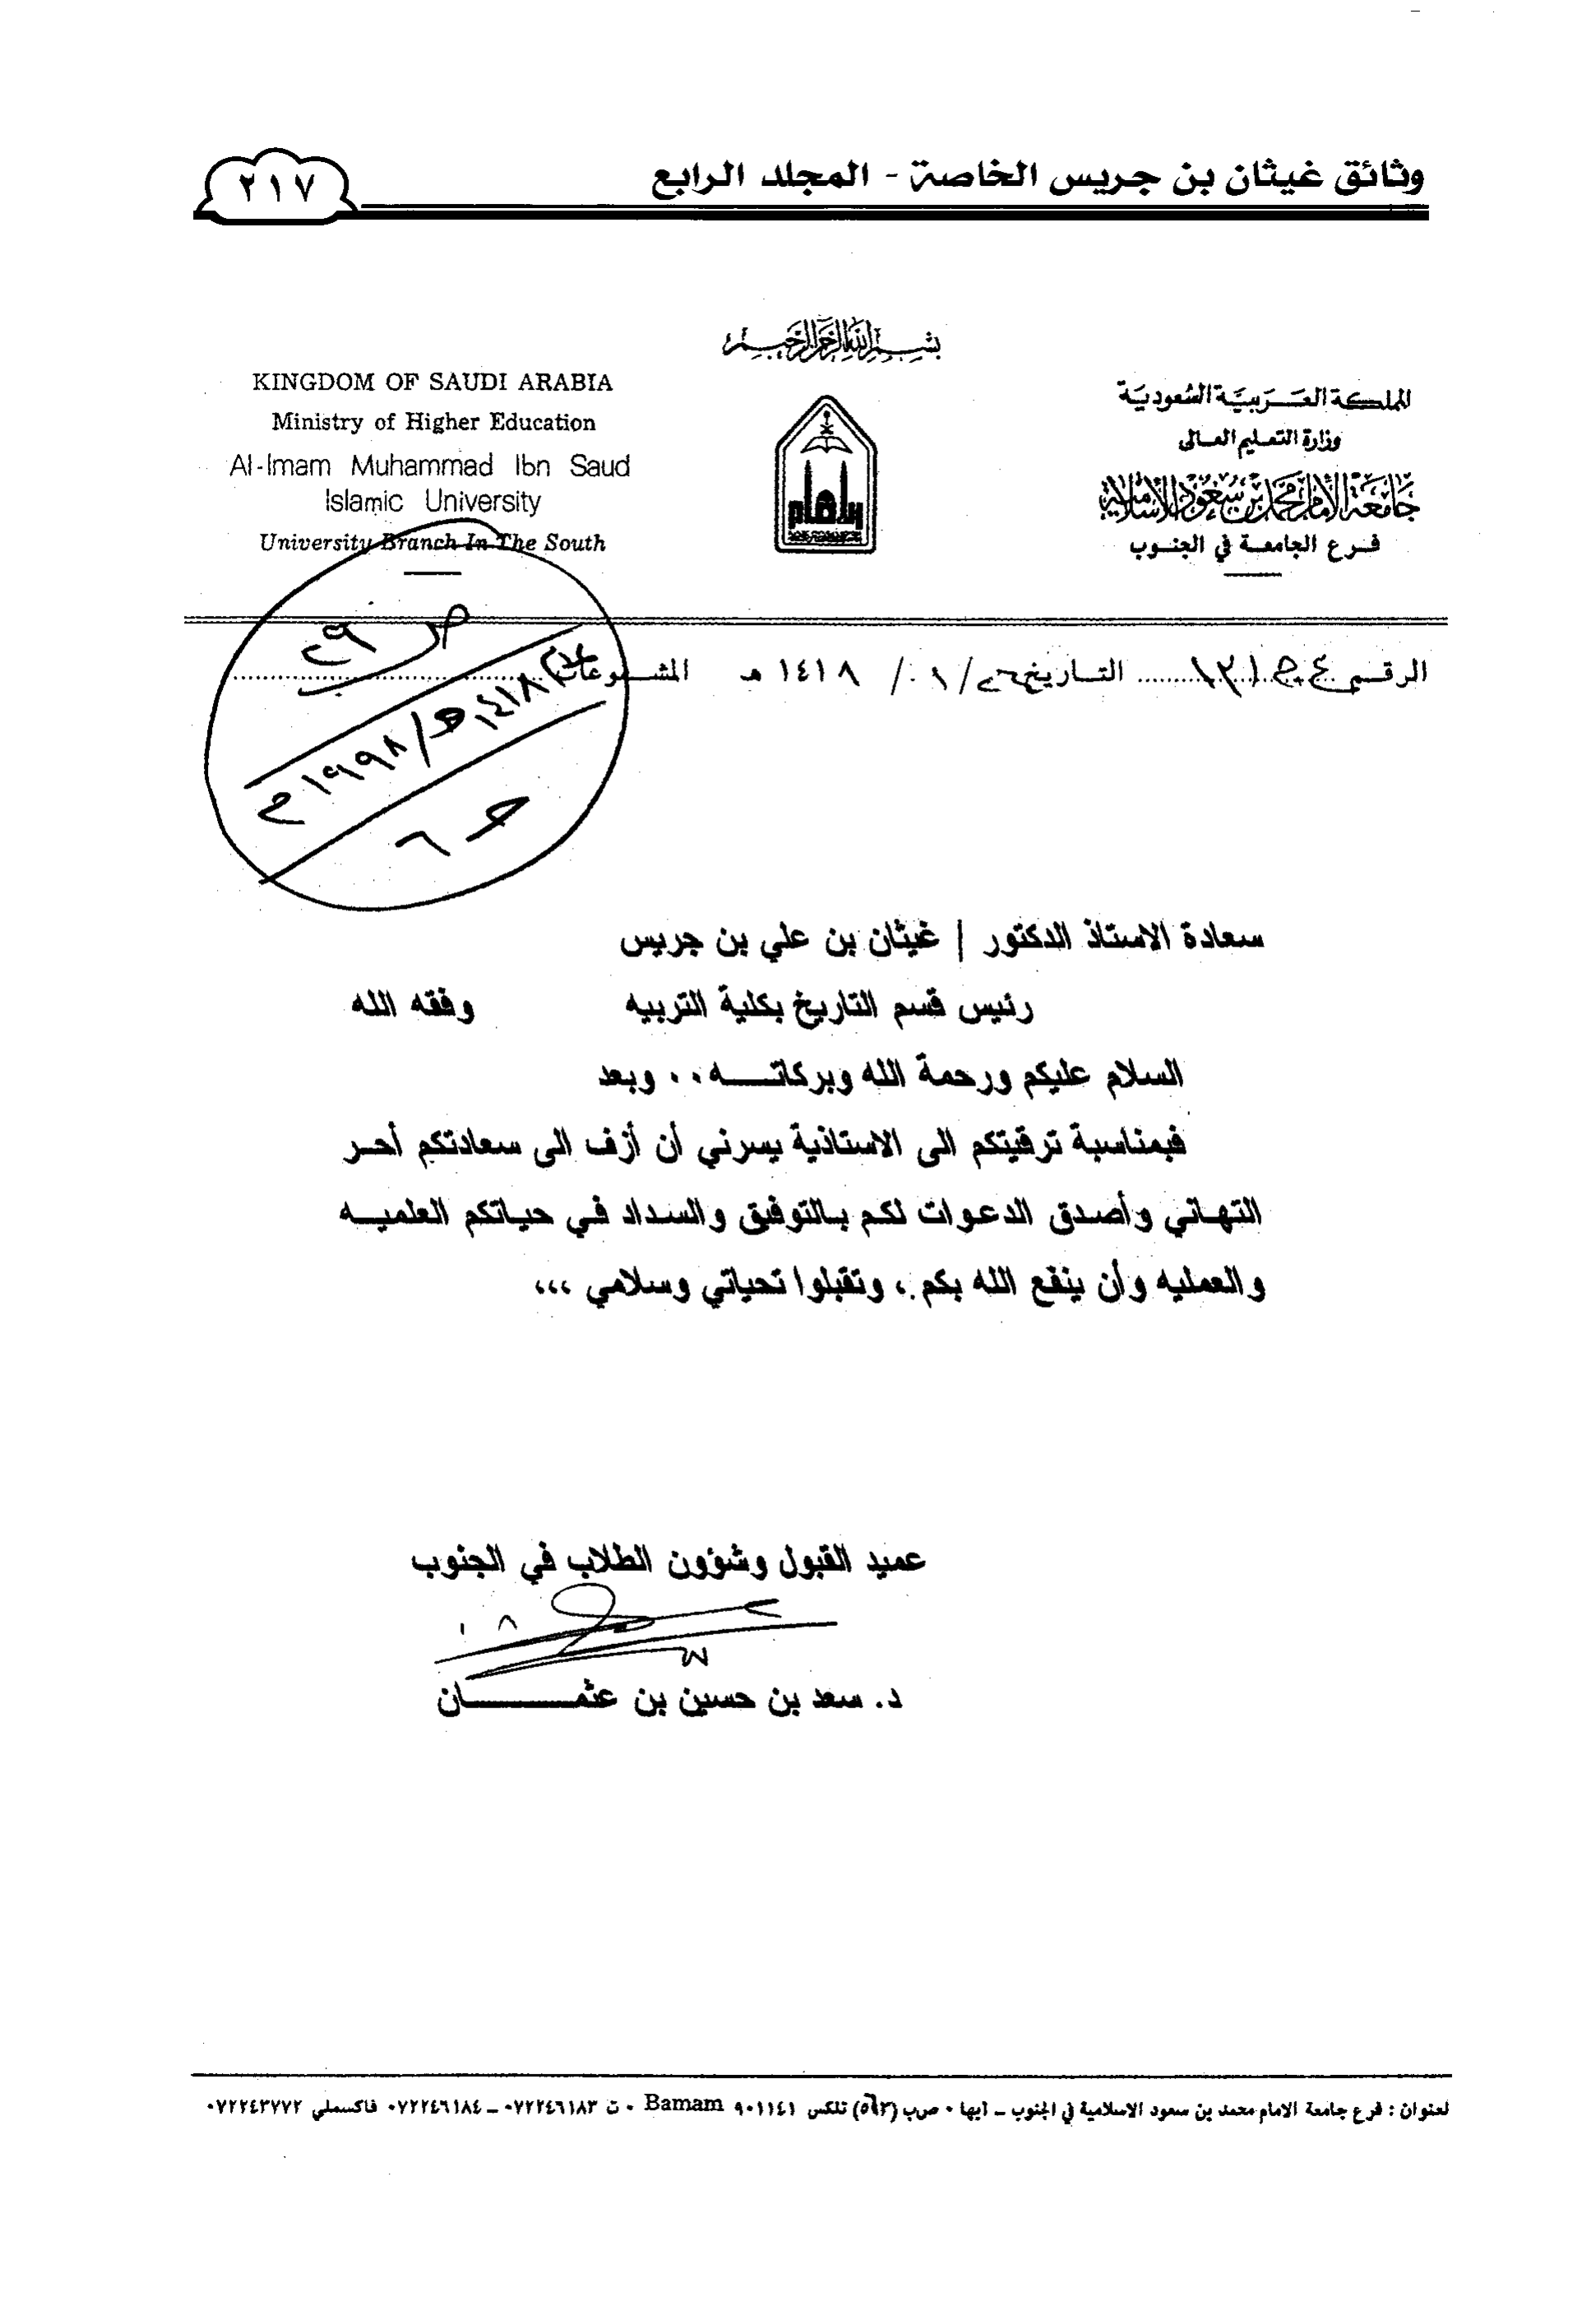 وثائق غيثان بن جريس الخاصة - المجلد الرابع
٢١٧
بسم الله الرحمن الرحيم
المملكة العربية السعودية
وزارة التعليم العالى
جامعة الإمام محمد بن سعود الإسلامية
فرع الجامعة في الجنوب
KINGDOM OF SAUDI ARABIA
Ministry of Higher Education
Al-Imam Muhammad Ibn Saud
Islamic University
University Branch In The South
الرقم التاريخ ١٤١٨ هـ المشفوعات
ص
١٤١٨هـ/١٩٩٨م
سعادة الاستاذ الدكتور / غيثان بن علي بن جريس
رئيس قسم التاريخ بكلية التربيه وفقه الله
السلام عليكم ورحمة الله وبركاتـــه ٠٠ وبعد
فبمناسبة ترقيتكم الى الاستاذية يسرني أن أزف الى سعادتكم أحـر
التهـاني وأصـدق الدعـوات لكـم بـالتوفيق والسـداد فـي حيـاتكم العلميـه
والعمليه وأن ينفع الله بكم ، وتقبلوا تحياتي وسلامي ،،،
عميد القبول وشؤون الطلاب في الجنوب
د. سعد بن حسين بن عثمــــــان
لعنوان : فرع جامعة الامام محمد بن سعود الاسلامية في الجنوب – ابها ٠ ص ب (٥٦٣) تلكس ٩٠١١٤١ Bamam ٠ ت ٠٧٢٢٤٦١٨٣ – ٠٧٢٢٤٦١٨٤ فاكسملي ٠٧٢٢٤٣٧٧٢